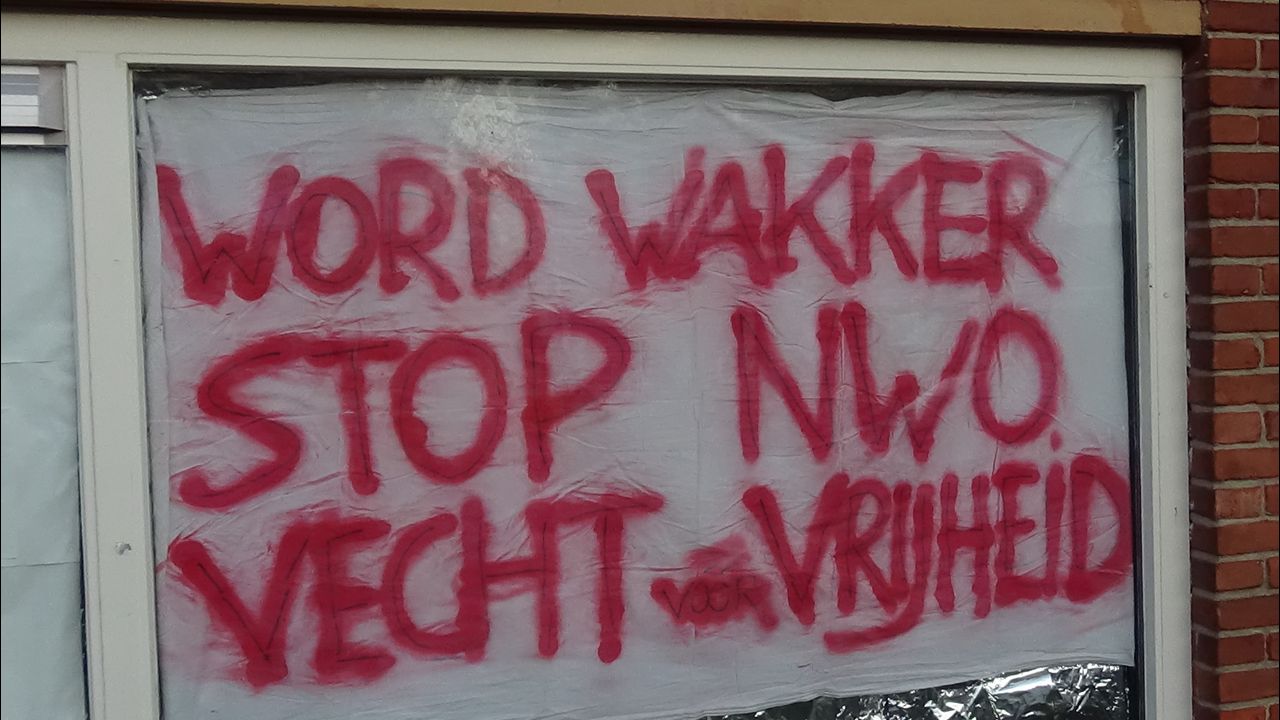 WORD WAKKER
STOP NWO.
VECHT VOOR VRIJHEID